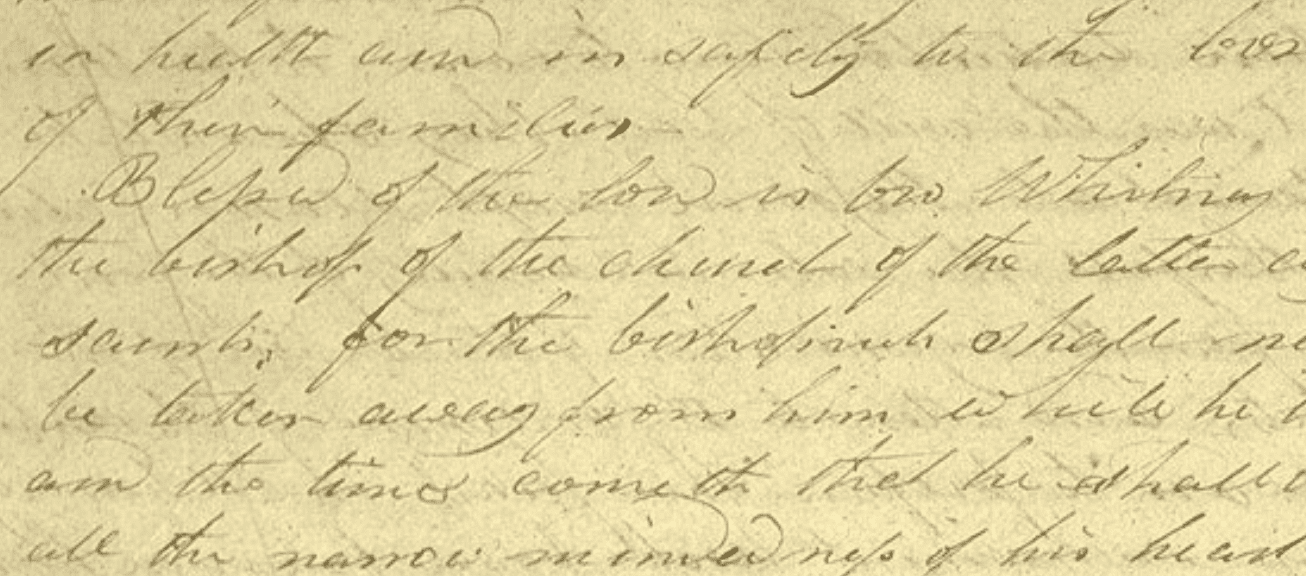 in health and in safety to the
of their families
Blessed of the lord is bro. Whitney
the bishop of the church of the latter
saints, for the bishoprick shall
be taken away from him while he
and the time cometh that he shall
all the narrow mindedness of his heart